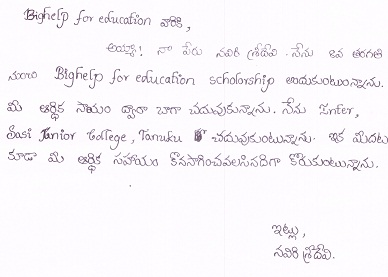 Bighelp for education వారికి,
అయ్యా! నా పేరు నవిరి శ్రీదేవి. నేను 8వ తరగతి
నుండి Bighelp for education scholorship అందుకుంటున్నాను.
మీ ఆర్థిక సాయం ద్వారా బాగా చదువుకున్నాను. నేను Inter,
Sasi Junior College, Tanuku లో చదువుకుంటున్నాను. ఇక మీదట
కూడా మీ ఆర్థిక సహాయం కొనసాగించవలసినదిగా కోరుకుంటున్నాను.
ఇట్లు,
నవిరి శ్రీదేవి.